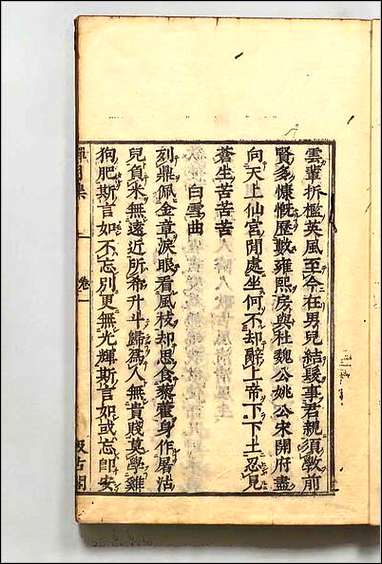 雲輩折檻英風至今在男兒結髮事君親須斆前
賢多慷慨歷數雍熙房與杜魏公姚公宋開府盡
向天上仙宮閒處坐何不却辭上帝下下土忍見
蒼生苦苦苦
白雪曲
列鼎佩金章淚眼看風枝却思食藜藿身作屠沽
兒負米無遠近所希升斗歸爲人無貴賤莫學雞
狗肥斯言如不忘別更無光輝斯言如或忘卽安
禪月集
卷一
汲古閣